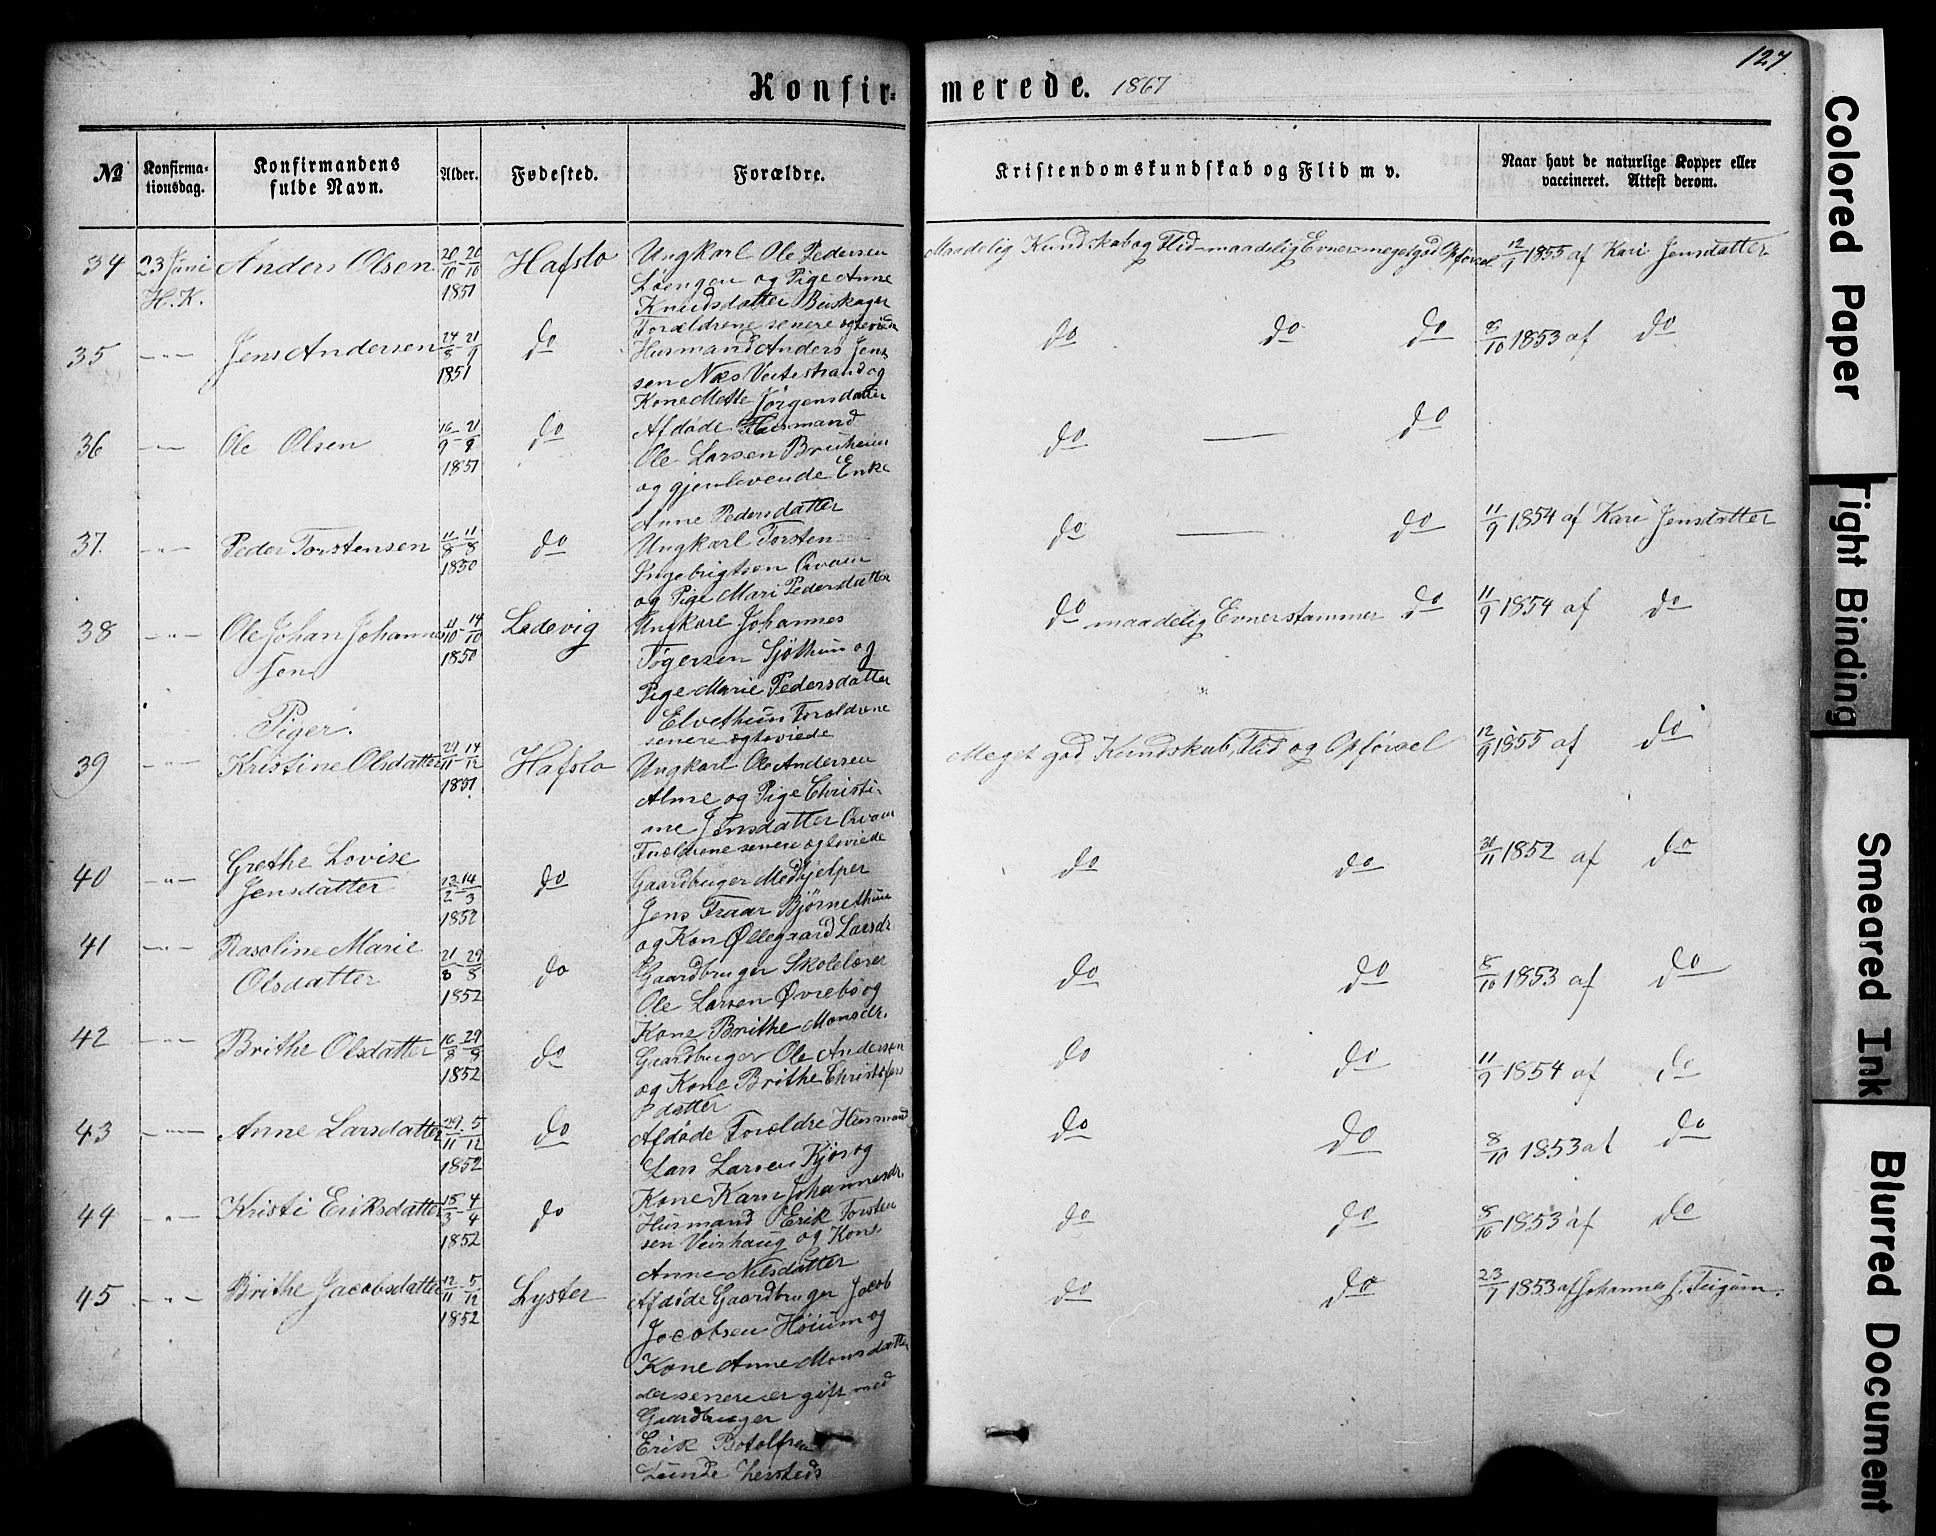 Konfir-
merede. 1867
127
№
Konfirma-
tionsdag.
Konfirmandens
fulde Navn.
Alder.
Fødested.
Forældre.
Kristendomskundskab og Flid m v.
Naar havt de naturlige Kopper eller
vaccineret. Attest derom.
34 23 Juni Anders Olsen 20/10 20/10 1851 Hafslo
H. K.
Ungkarl Ole Pedersen
Løengen og Pige Anne
Knudsdatter Beiskager
Forældrene senere ægteviede
Maadelig Kundskab og Flid - maadelig Evner - meget god Opførsel
12/9 1855 af Kari Jensdatter
35 -"- Jens Andersen 24/8 21/9 1851 do
Husmand Anders Jens
sen Næs Veitestrand og
Kone Mette Jørgensdatter
do do do
8/10 1853 af do
36 -"- Ole Olsen 16/9 21/9 1851 do
Afdøde Husmand
Ole Larsen Bruheim
og gjenlevende Enke
Anne Pedersdatter
do — do
37. -"- Peder Torstensen 11/8 11/8 1850 do
Ungkarl Torsten
Ingebrigtsen
og Pige Mari Pedersdatter
do — do
11/9 1854 af Kari Jensdatter
38 -"- Ole Johan Johannes
sen
11/10 14/10 1850 Ladevig
Ungkarl Johannes
Tøgersen Sjøthun og
Pige Marie Pedersdatter
Elvethun Forældrene
senere ægteviede
do maadelig Evner stammer do
11/9 1854 af do
Piger.
39 -"- Kristine Olsdatter 21/11 14/12 1851 Hafslo
Ungkarl Ole Andersen
Alme og Pige Christi-
ne Jensdatter
Forældrene senere ægteviede
Meget god Kundskab, Flid og Opførsel
12/9 1855 af do
40 -"- Grethe Lovise
Jensdatter
13/2 14/3 1852 do
Gaardbruger Medhjelper
Jens Traar Bjørnethun
og Kon Øllegaard Larsdr.
do do
30/11 1852 af do
41 -"- Rasoline Marie
Olsdatter
21/8 29/8 1852 do
Gaardbruger Skolelærer
Ole Larsen Øvrebø og
Kone Brithe Monsdr.
do do
8/10 1853 af do
42 -"- Brithe Olsdatter 16/8 29/8 1852 do
Gaardbruger Ole Andersen
og Kone Brithe Christofers
datter
do do
11/9 1854 af do
43 -"- Anne Larsdatter 29/11 5/12 1852 do
Afdøde Forældre Husmand
Lars Larsen Kjøs og
Kone Kari Johannesdr.
do do
8/10 1853 af do
44 -"- Kristi Eriksdatter 18/3 4/4 1852 do
Husmand Erik Torsten
sen Veirhaug og Kone
Anne Nilsdatter
do do
8/10 1853 af do
45 -"- Brithe Jacobsdatter 12/11 5/12 1852 Lyster
Afdøde Gaardbruger Jacob
Jacobsen Høium og
Kone Anne Monsdatter
der senere er gift med
Gaardbruger
Erik Botolfsen
Lunde
do do
23/7 1853 af Johannes J. Teigum.
Colored Paper
Tight Binding
Smeared Ink
Blurred Document